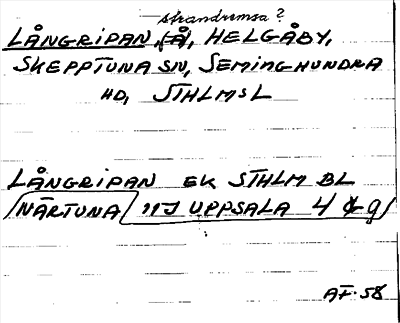 strandremsa?
LÅNGRIPAN, (Å), HELGÅBY,
SKEPPTUNA SN, SEMINGHUNDRA
HD, STHLMS L
LÅNGRIPAN EK STHLM BL
NÄRTUNA 11J UPPSALA 4 & 9
AF. 58